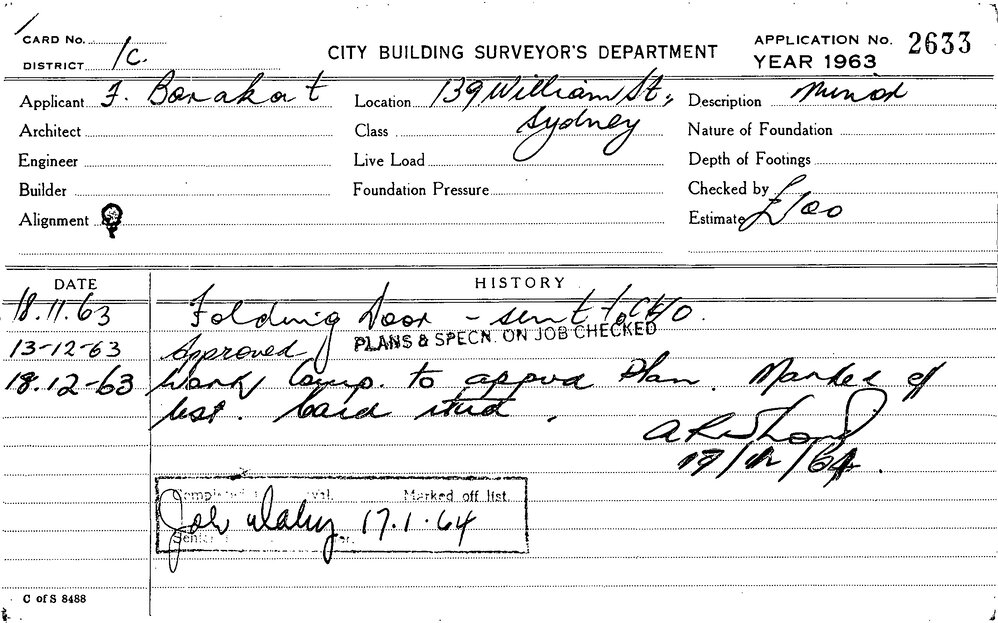 CARD No.
DISTRICT 1C.
CITY BUILDING SURVEYOR'S DEPARTMENT
APPLICATION No. 2633
YEAR 1963
Applicant F. Barakat Location 139 William St, Description Minor
Architect Class Sydney Nature of Foundation
Engineer Live Load Depth of Footings
Builder Foundation Pressure Checked by
Alignment Estimate £100
DATE HISTORY
18.11.63 Folding Door - sent to
13-12-63 Approved PLANS & SPECN. ON JOB CHECKED
18.12-63 Work Comp. to appvd Plan. Marked off
list. Card
Marked off list.
17.1.64
C of S 8488